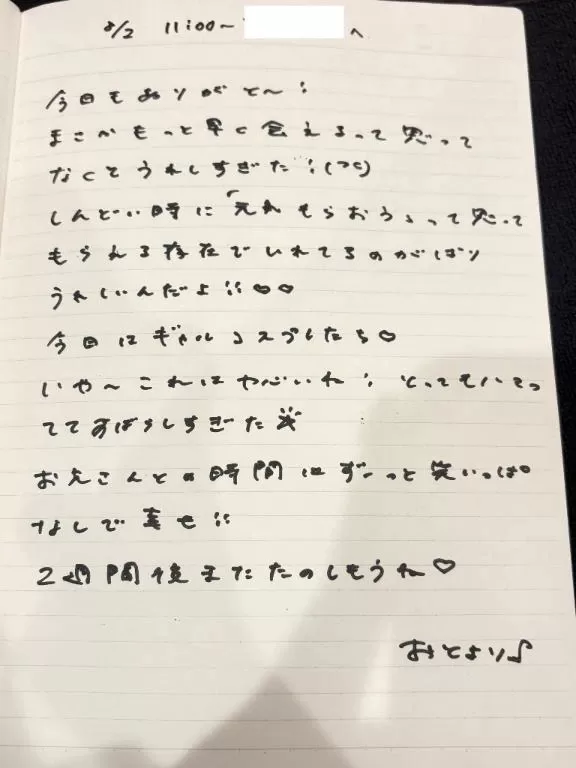 8/2 11:00〜 へ
今日もありがと〜!
まさかもっと早く会えるって思って
なくてうれしすぎた!(つC)
しんどい時に「元気もらおう」って思って
もらえる存在でいれてるのがばり
うれしいんだよ!!♡♡
今日はギャルコスプしたら♡
いや〜これはやばいね! とっても
ててすばらしすぎた
おえさんとの時間はずーっと笑いっぱ
なしで幸せ!!
2週間後またたのしもうね♡
おとより♪